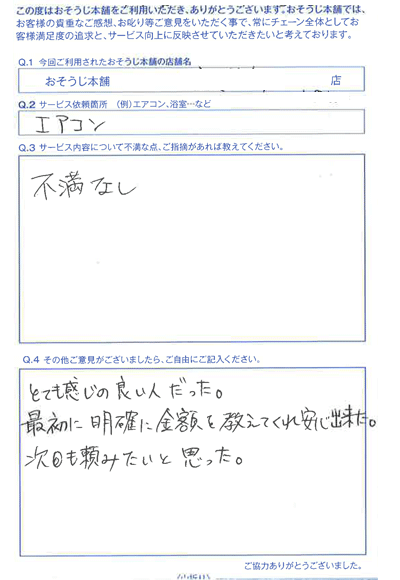 この度はおそうじ本舗をご利用いただき、ありがとうございます。おそうじ本舗では、
お客様の貴重なご感想、お叱り等ご意見をいただく事で、常にチェーン全体としてお
客様満足度の追求と、サービス向上に反映させていただきたいと考えております。
Q.1 今回ご利用されたおそうじ本舗の店舗名
おそうじ本舗 店
Q.2 サービス依頼箇所 (例)エアコン、浴室…など
エアコン
Q.3 サービス内容について不満な点、ご指摘があれば教えてください。
不満なし
Q.4 その他ご意見がございましたら、ご自由にご記入ください。
とても感じの良い人だった。
最初に明確に金額を教えてくれ安心出来た。
次回も頼みたいと思った。
ご協力ありがとうございました。